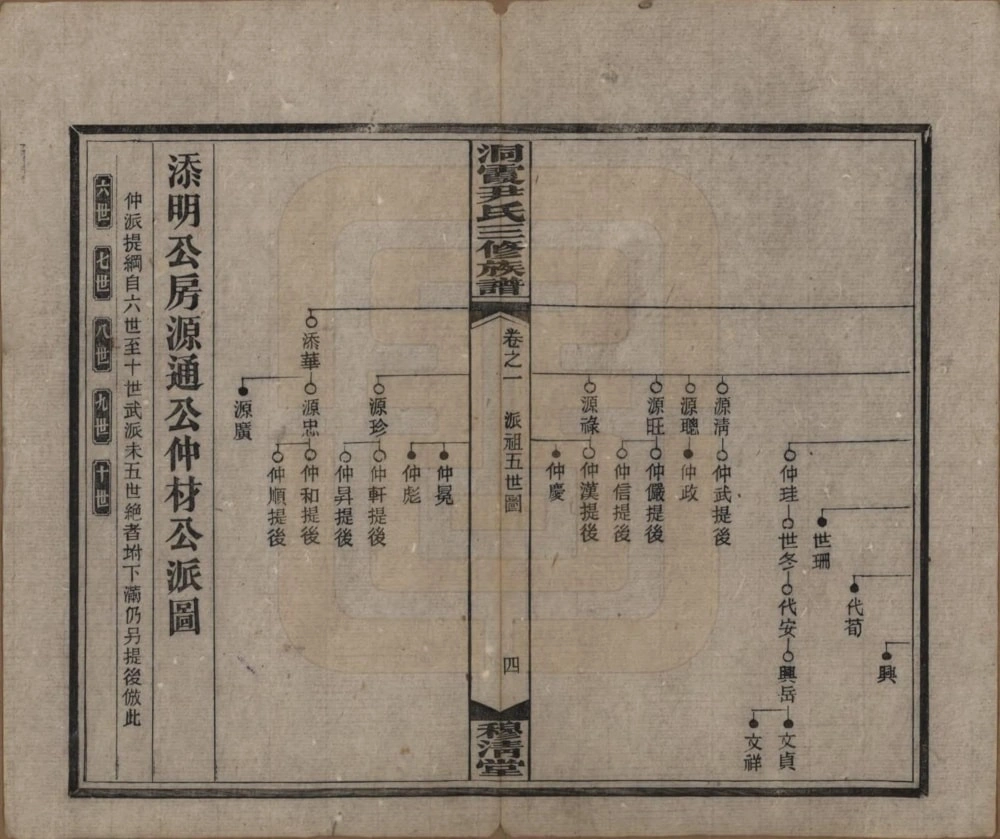 興
代荀
世珊
仲珪 世冬 代安 興岳
文貞
文祥
源清 仲武提後
源聰 仲政
源旺 仲儼提後
仲信提後
源祿 仲漢提後
仲慶
洞霞尹氏三修族譜
卷之一 派祖五世圖 四
穆清堂
仲冕
仲彪
源珍 仲軒提後
仲昇提後
添華 源忠 仲和提後
仲順提後
源廣
添明公房源通公仲材公派圖
仲派提綱自六世至十世武派未五世絶者坿下滿仍另提後倣此
六世 七世 八世 九世 十世